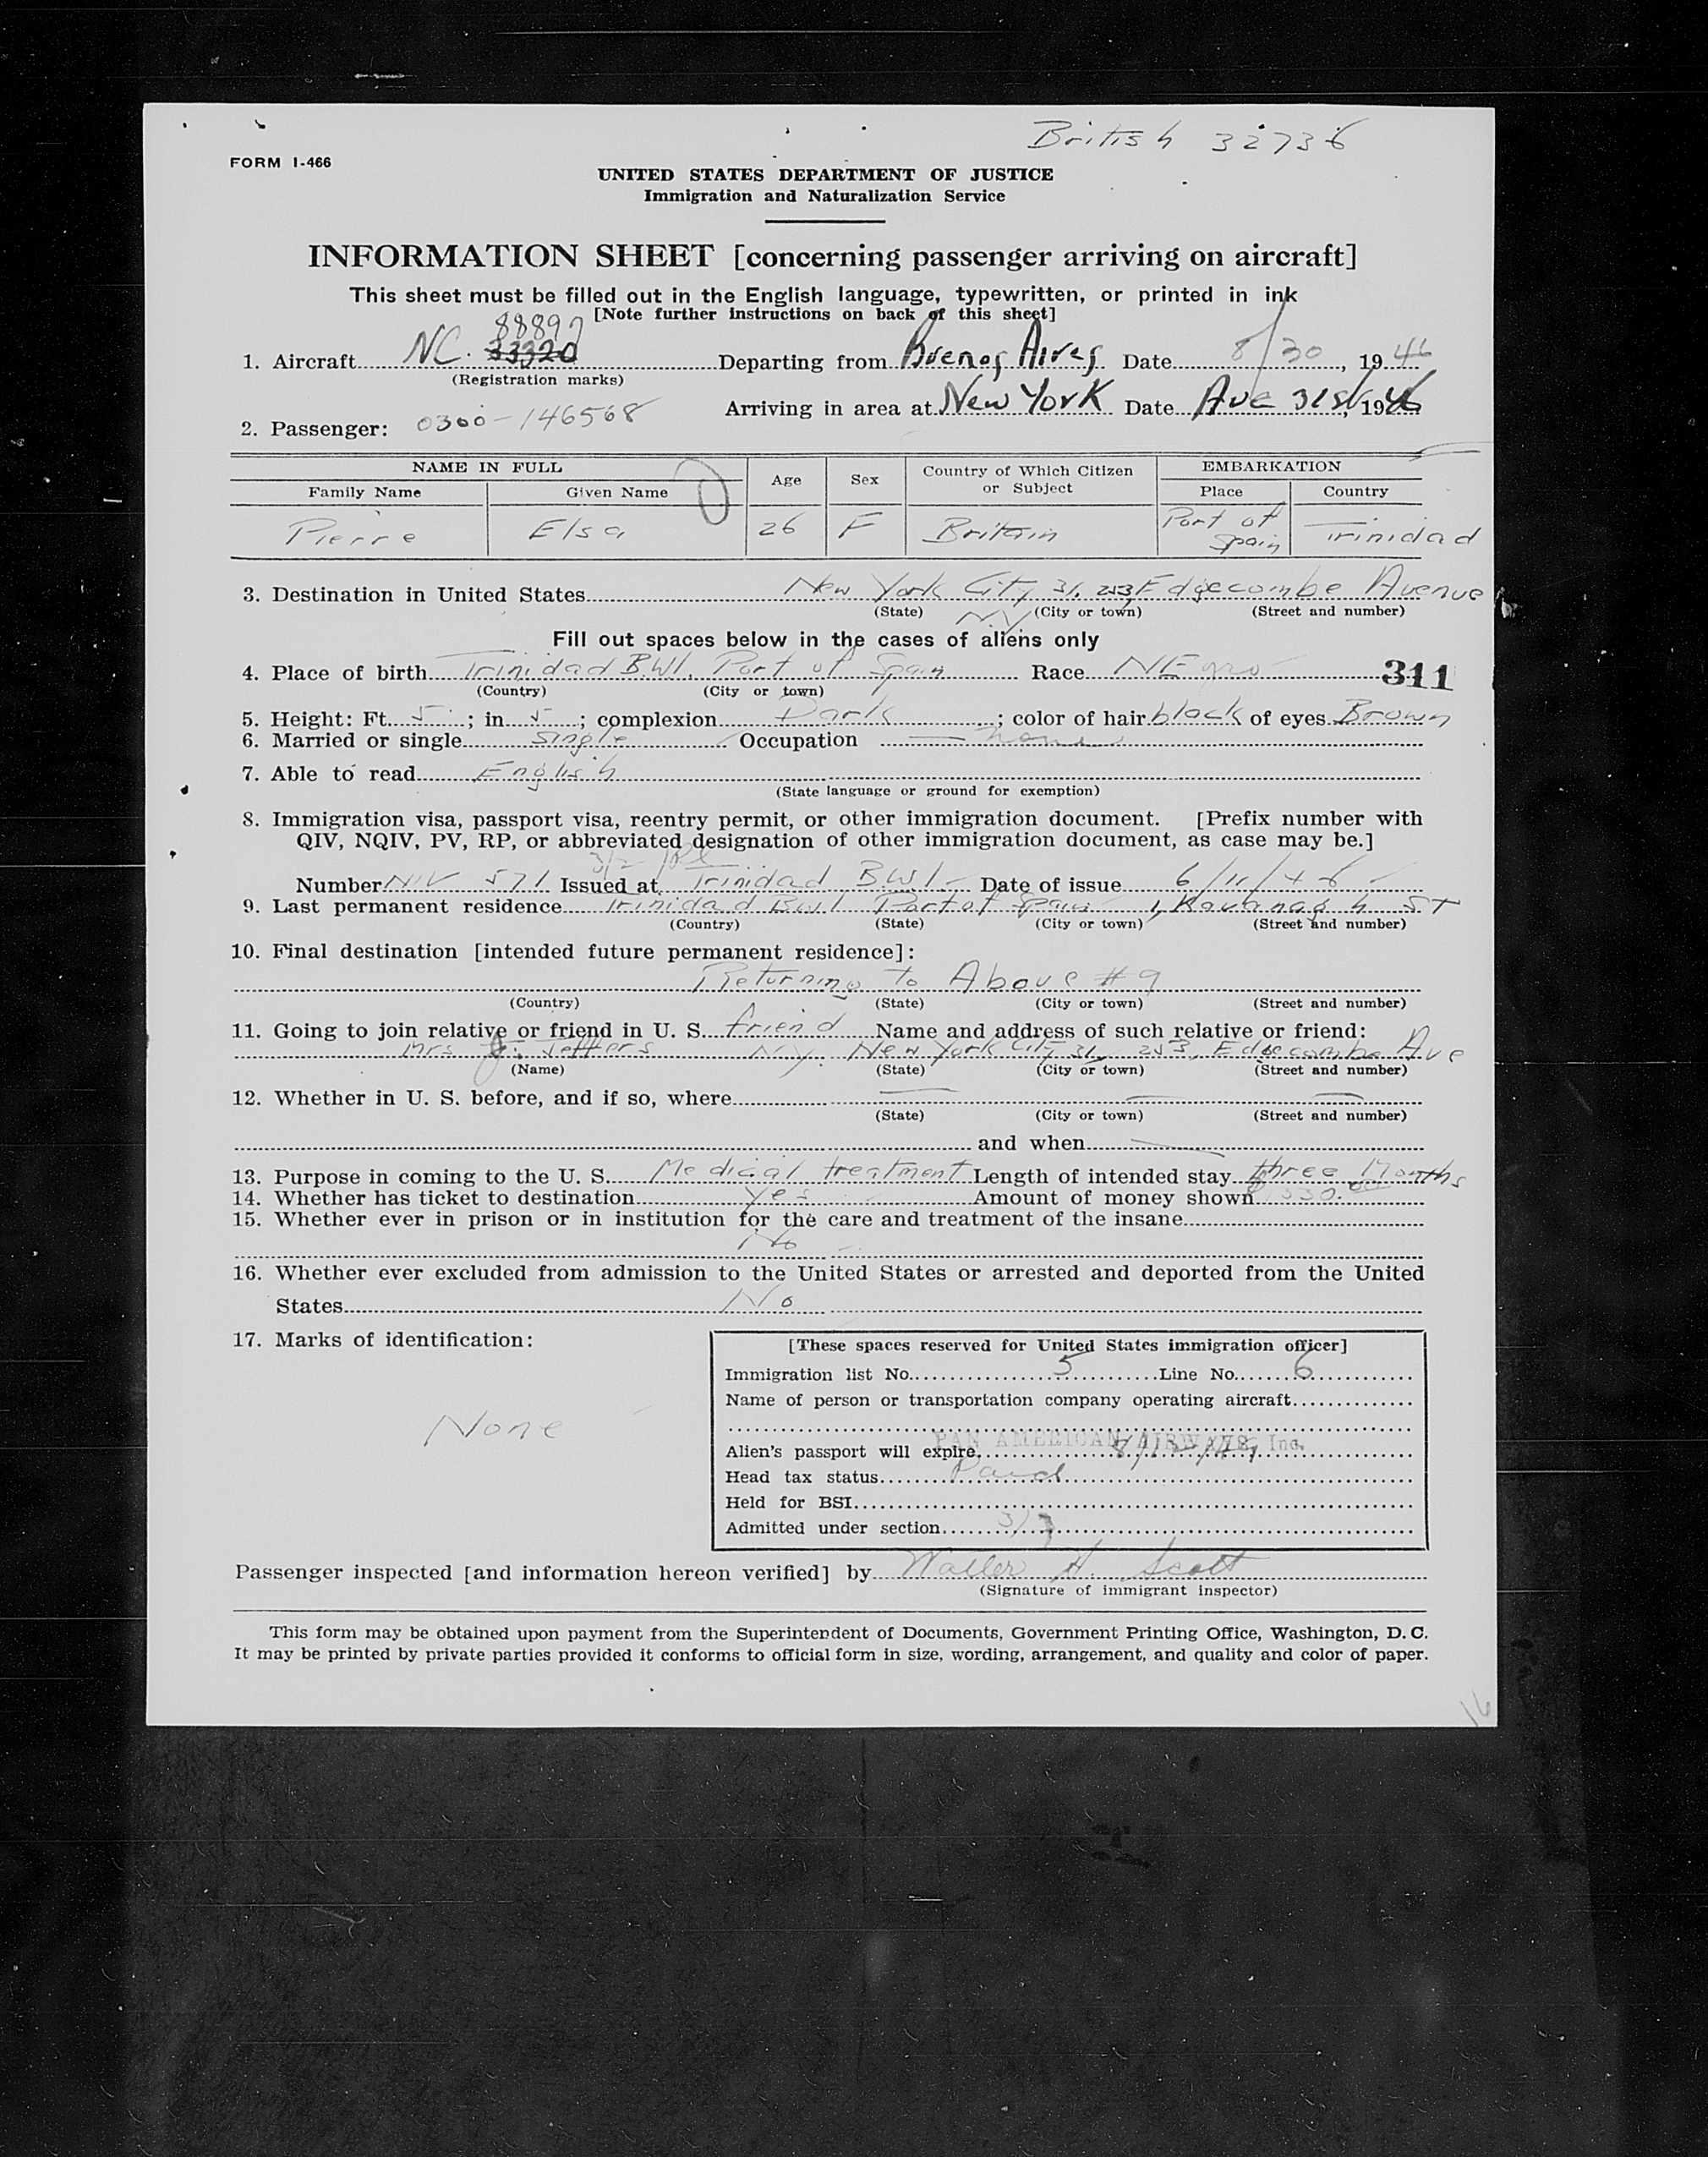 British 32736
FORM I-466
UNITED STATES DEPARTMENT OF JUSTICE
Immigration and Naturalization Service
INFORMATION SHEET [concerning passenger arriving on aircraft]
This sheet must be filled out in the English language, typewritten, or printed in ink
[Note further instructions on back of this sheet]
88897
1. Aircraft NC. 33320 Departing from Buenos Aires Date 8/30, 1946
(Registration marks)
Arriving in area at New York Date Aug 31st, 1946
2. Passenger: 0300-146568
NAME IN FULL Age Sex Country of Which Citizen or Subject EMBARKATION
Family Name Given Name Place Country
Pierre Elsa 26 F Britain Port of Spain Trinidad
3. Destination in United States New York City 31, 253 Edgecombe Avenue
(State) NY (City or town) (Street and number)
Fill out spaces below in the cases of aliens only
4. Place of birth Trinidad B.W.I. Port of Spain Race NEgro 311
(Country) (City or town)
5. Height: Ft. 5; in 5; complexion Dark; color of hair black of eyes Brown
6. Married or single Single Occupation none
7. Able to read English
(State language or ground for exemption)
8. Immigration visa, passport visa, reentry permit, or other immigration document. [Prefix number with
QIV, NQIV, PV, RP, or abbreviated designation of other immigration document, as case may be.]
Number NIV 571 Issued at Trinidad B.W.I. Date of issue 6/11/46
9. Last permanent residence Trinidad BWI Port of Spain 1, Kavanagh ST
(Country) (State) (City or town) (Street and number)
10. Final destination [intended future permanent residence]:
Returning to Above #9
(Country) (State) (City or town) (Street and number)
11. Going to join relative or friend in U. S. friend Name and address of such relative or friend:
Mrs J. Jeffers N.Y. New York City 31, 253, Edgecombe Ave
(Name) (State) (City or town) (Street and number)
12. Whether in U. S. before, and if so, where
(State) (City or town) (Street and number)
and when
13. Purpose in coming to the U. S. Medical treatment Length of intended stay three Months
14. Whether has ticket to destination Yes Amount of money shown 330.00
15. Whether ever in prison or in institution for the care and treatment of the insane
No
16. Whether ever excluded from admission to the United States or arrested and deported from the United
States No
17. Marks of identification:
None
[These spaces reserved for United States immigration officer]
Immigration list No. 5 Line No. 6
Name of person or transportation company operating aircraft
PAN AMERICAN AIRWAYS, Inc.
Alien's passport will expire
Head tax status Paid
Held for BSI
Admitted under section 3/2
Passenger inspected [and information hereon verified] by Walter H. Scott
(Signature of immigrant inspector)
This form may be obtained upon payment from the Superintendent of Documents, Government Printing Office, Washington, D. C.
It may be printed by private parties provided it conforms to official form in size, wording, arrangement, and quality and color of paper.
16